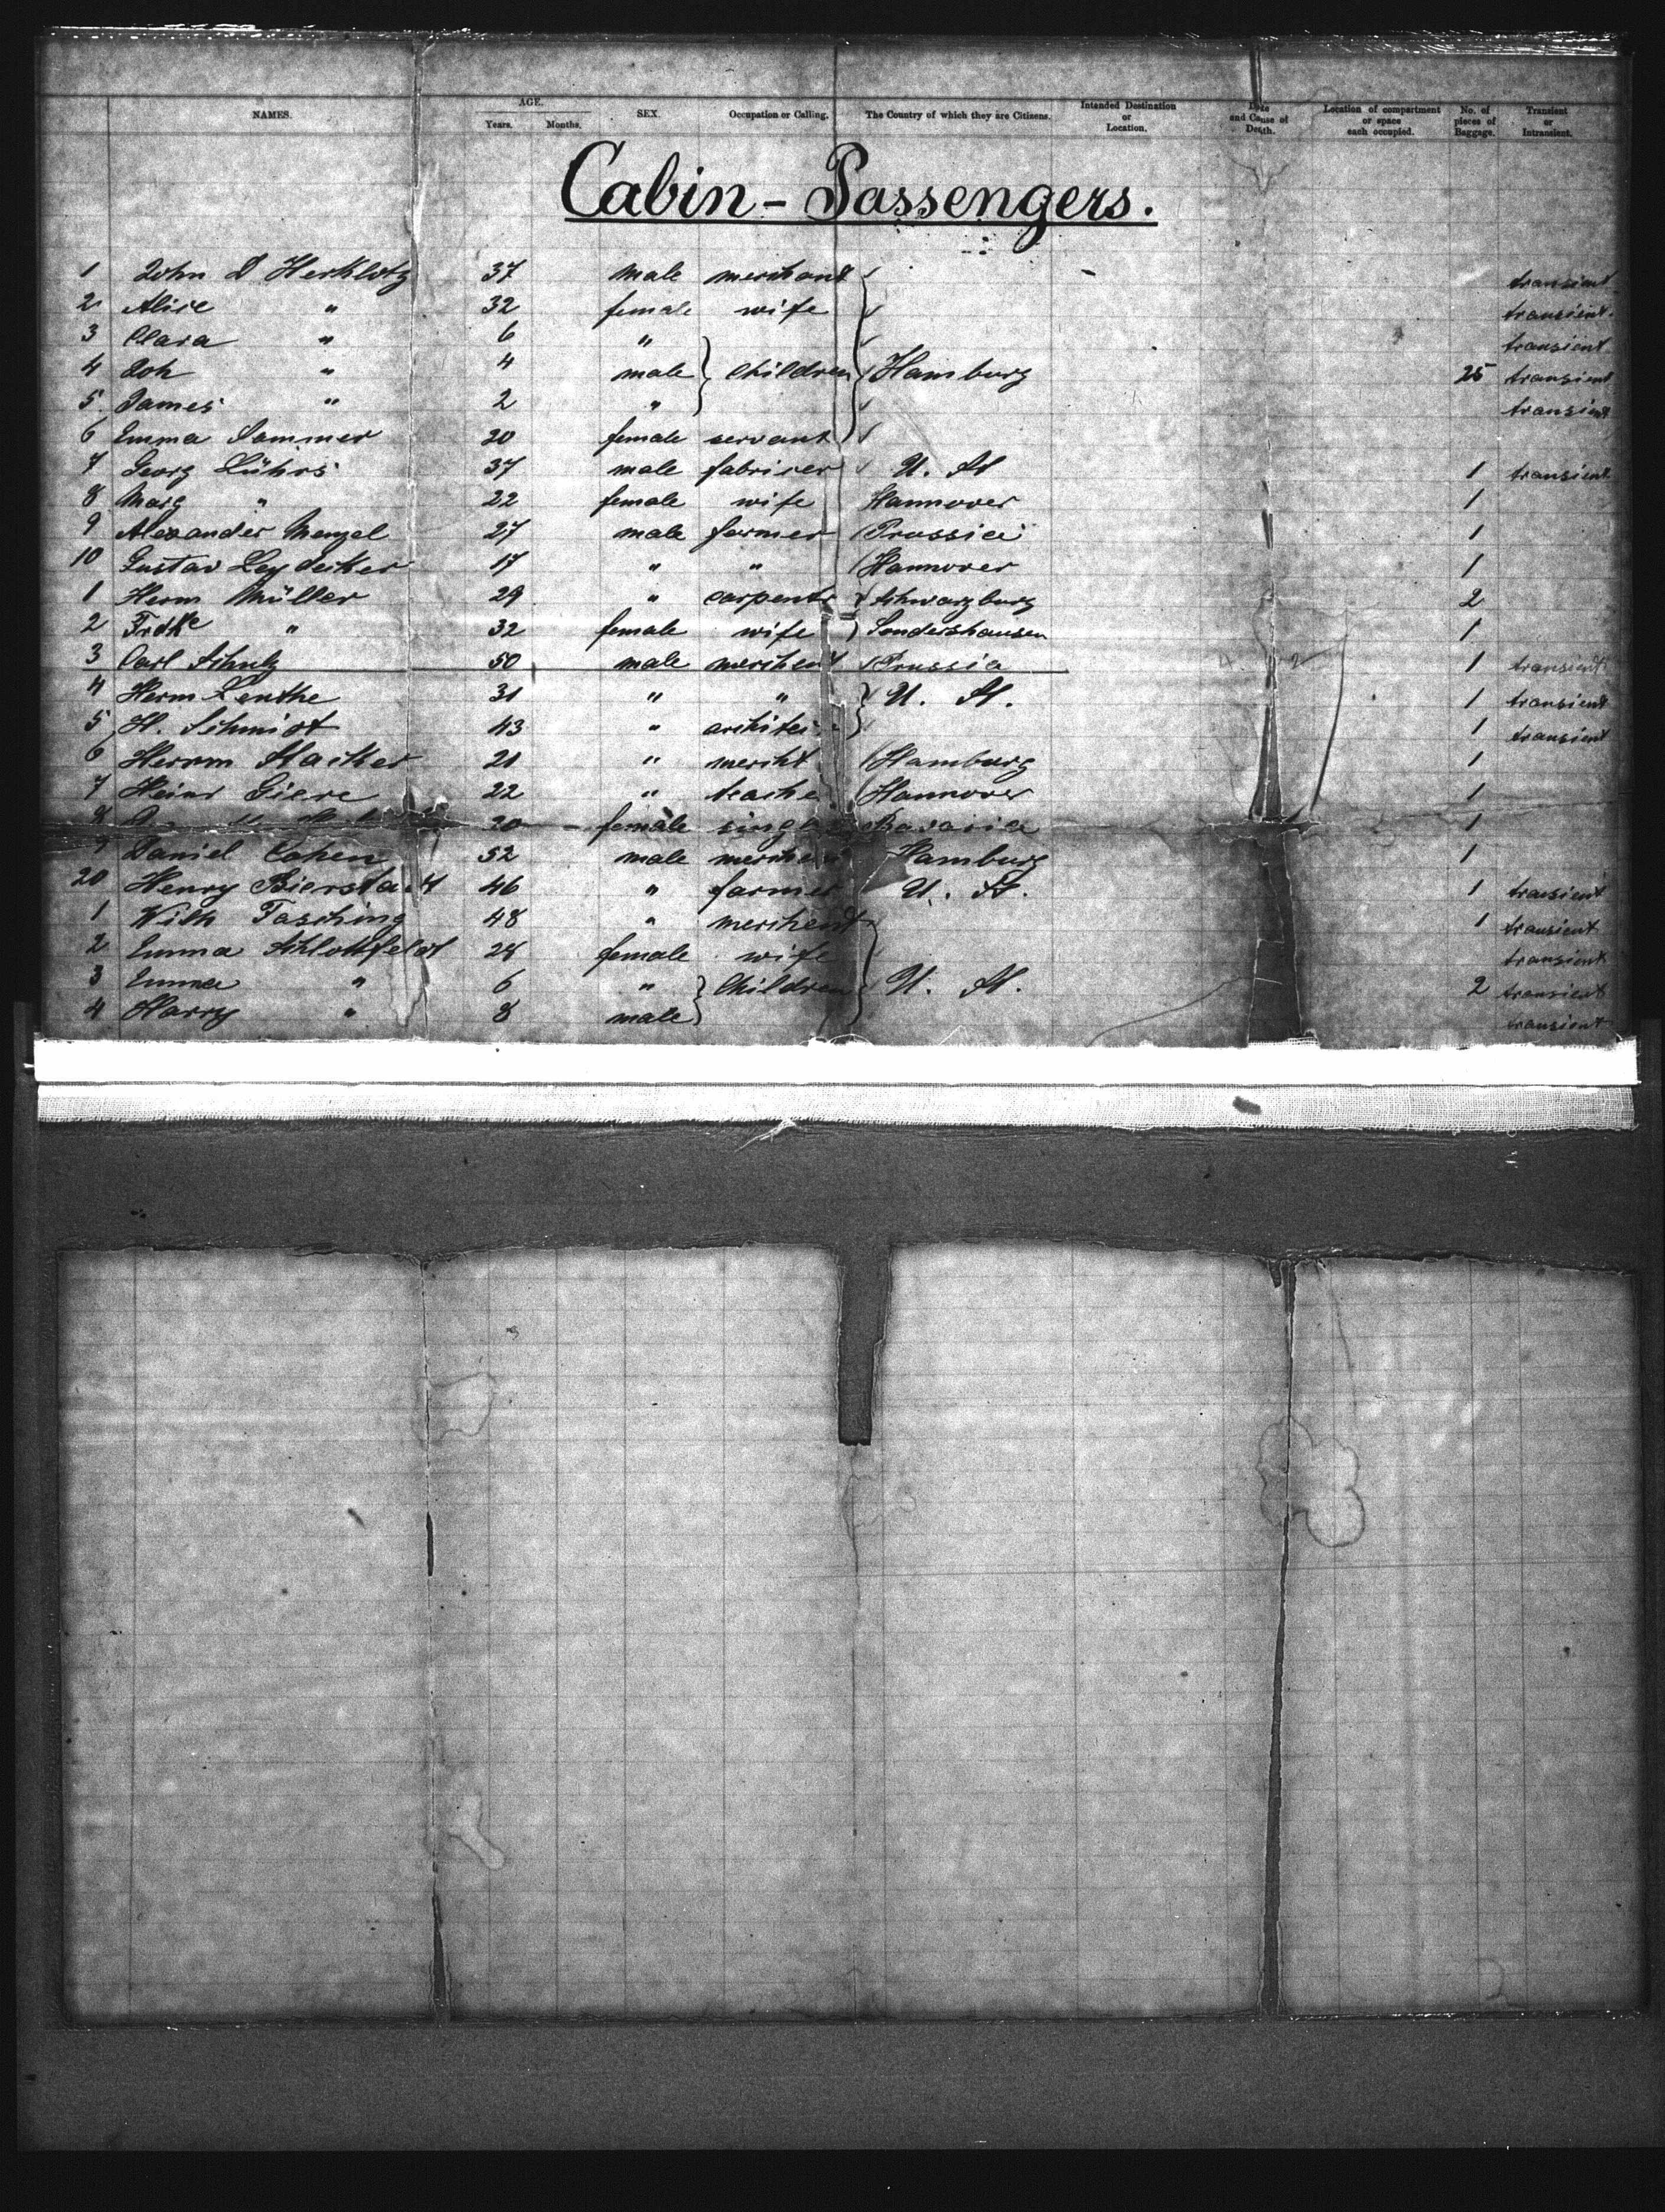 NAMES. AGE. Years. Months. SEX. Occupation or Calling. The Country of which they are Citizens. Intended Destination or Location. Date and Cause of Death. Location of compartment or space each occupied. No. of pieces of Baggage. Transient or Intransient.
Cabin - Passengers.
1 John D Herklotz 37 male merchant transient
2 Alice " 32 female wife transient.
3 Clara " 6 " transient
4 Joh " 4 male Children Hamburg 25 transient
5 James " 2 " transient
6 Emma Sommer 20 female servant
7 Georg Lührs 37 male fabricer U. St 1 transient
8 Marg " 22 female wife Hannover 1
9 Alexander Menzel 27 male farmer Prussia 1
10 Gustav Leydecker 17 " " Hannover 1
1 Herm Müller 29 " carpentr Schwarzburg 2
2 Frdke " 32 female wife Sondershausen 1
3 Carl Schulz 50 male merchent Prussia 1 transient
4 Herm Lenthe 31 " " U. St. 1 transient
5 H. Schmidt 43 " architec 1 transient
6 Herrm 21 " mercht Hamburg 1
7 Heinr Giere 22 " teache Hannover 1
8 female Bavaria 1
9 Daniel Cohen 52 male merchent Hamburg 1
20 Henry Bierstadt 46 " farmer U. St. 1 transient
1 Wilh Tasching 48 " merchendt 1 transient
2 Emma Schlottfeldt 28 female wife transient
3 Emma " 6 " Children U. St. 2 transient
4 Harry " 8 male transient